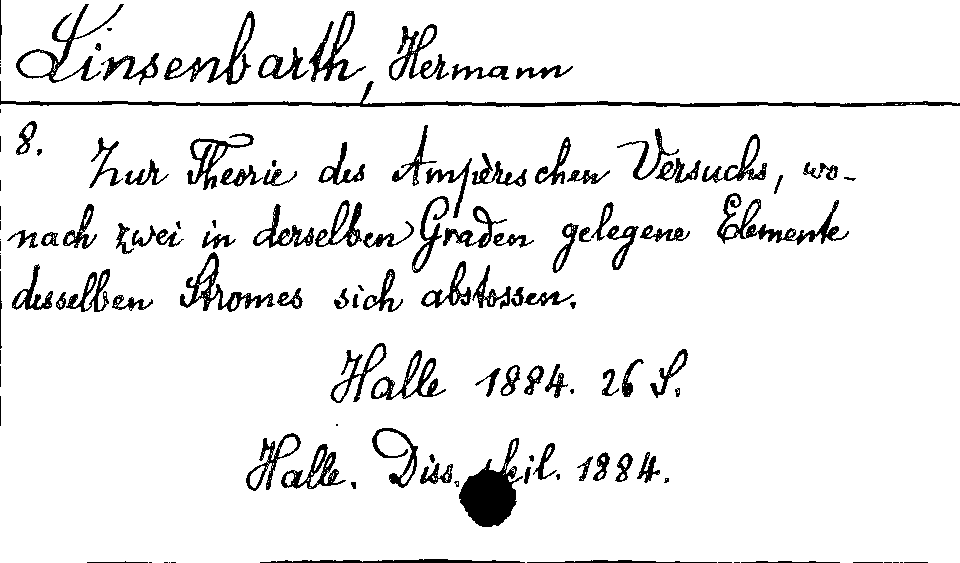 Linsenbarth, Hermann
8. Zur Theorie des Ampèreschen Versuchs, wo-
nach zwei in derselben Graden gelegene Elemente
desselben Stromes sich abstossen.
Halle 1884. 26 S.
Halle. Diss. phil. 1884.